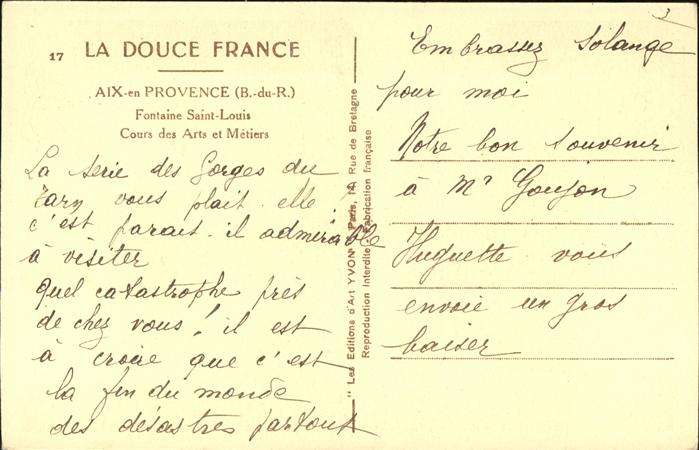 17 LA DOUCE FRANCE
AIX-en PROVENCE (B.-du-R.)
Fontaine Saint-Louis
Cours des Arts et Métiers
La serie des Gorges du
Tarn vous plait elle ?
c'est parait il admirable
à visiter
Quel catastrophe près
de chez vous ! il est
à croire que c'est
la fin du monde
des désastres partout
" Les Editions d'Art YVON " Paris, 14, Rue de Bretagne
Reproduction Interdite. Fabrication française
3
Embrassez Solange
pour moi
Notre bon souvenir
à Mr Goujon
Huguette vous
envoie un gros
baiser